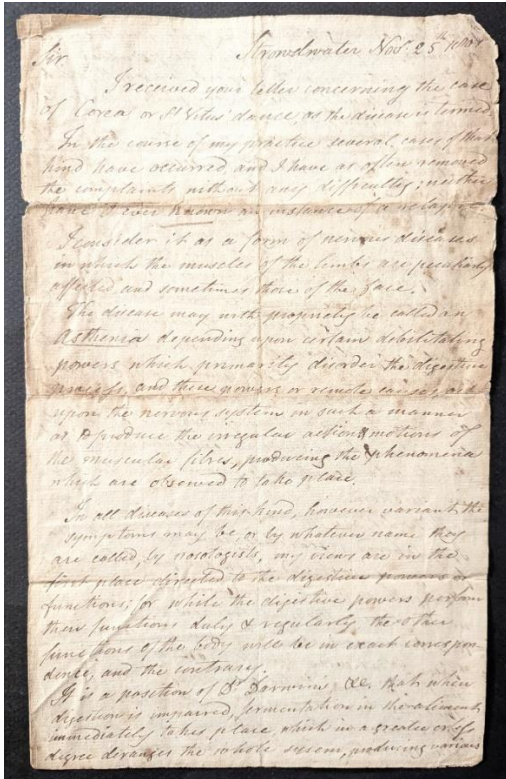 Strowdwater Nov. 25th
Sir
I received your letter concerning the case
of Corea or St Vitus' dance as the disease is termed
In the course of my practice several cases of that
kind have occurred and I have as often removed
the complaints without any difficulty; neither
have I ever known an instance of a relapse
I consider it as a form of nervous diseases
in which the muscles of the limbs are peculiarly
affected and sometimes those of the face.
The disease may with propriety be called an
Asthenia depending upon certain debilitating
powers which primarily disorder the digestive
process, and these powers or remote causes, act
upon the nervous system in such a manner
as to produce the irregular action & motions of
the muscular fibres, producing the phenomena
which are observed to take place.
In all diseases of this kind, however variant the
symptoms may be, or by whatever name they
are called, by nosologists, my views are in the
first place directed to the digestive powers or
functions; for while the digestive powers perform
their functions duly & regularly the other
functions of the body will be in exact correspon-
dence, and the contrary.
It is a position of Dr Darwins, &c. that when
digestion is impaired, fermentation in the aliment
immediately takes place, which in a greater or less
degree deranges the whole system, producing various